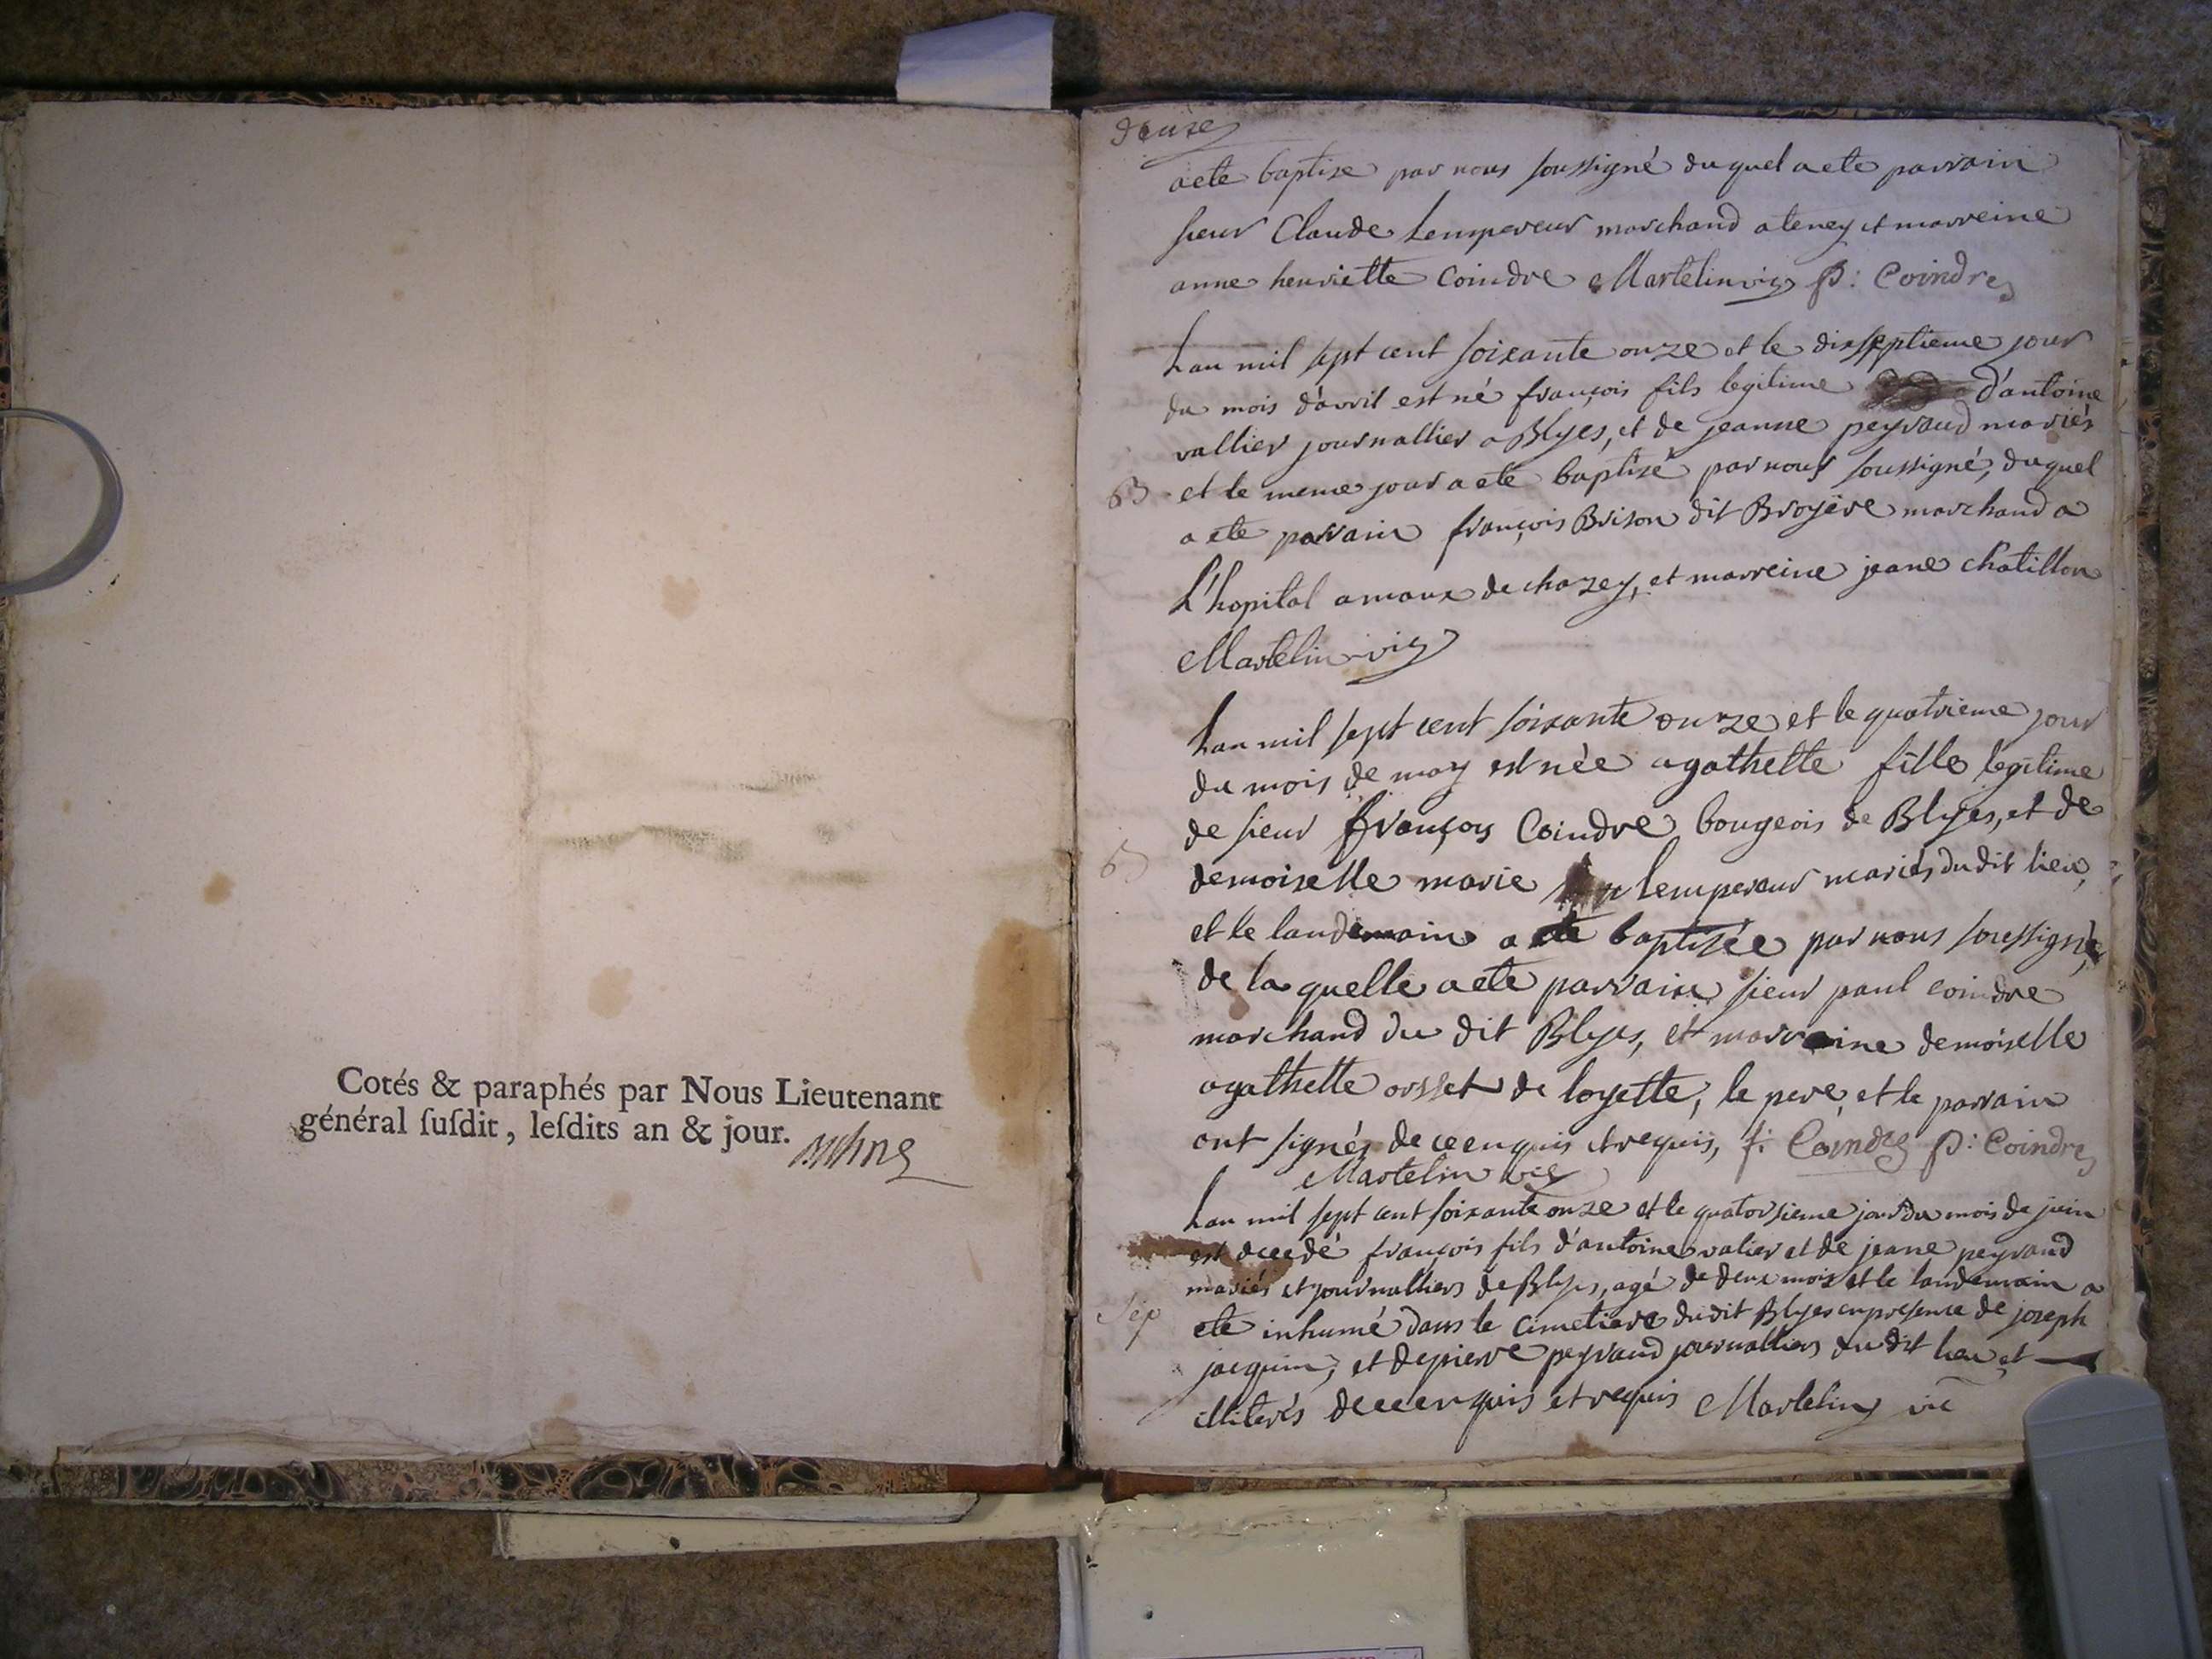 Cotés & paraphés par Nous Lieutenant
général ſuſdit, leſdits an & jour.
deuxe
a ete baptise par nous soussigné du quel a ete parrain
sieur Claude Lempereur marchand a teney et marreine
anne henriette Coindre Martelin vic p: Coindre
Lan mil sept cent soixante onze et le dixseptieme jour
du mois d'avril est né françois fils legitime d'antoine
vallier journallier a Blyes, et de jeanne peyraud mariés
B et le meme jour a ete baptisé par nous soussigné, duquel
a ete parrain françois Brison dit Broyere marchand a
L'hopital a maux de chazey, et marreine jeane chatillon
Martelin vic
Lan mil sept cent soixante onze et le quatrieme jour
du mois de may est née agathelle fille legitime
de sieur françoy Coindre bougeois de Blyes, et de
B demoiselle marie lempereur mariés du dit lieu,
et le landemain a ete baptisée par nous soussigné,
de la quelle a ete parrain sieur paul coindre
marchand du dit Blyes, et marraine demoiselle
agathelle orsset de loyette, le pere, et le parrain
ont signés de ce enquis et requis, f: Coindre p: Coindre
Martelin vic
Lan mil sept cent soixante onze et le quatorsieme jour du mois de juin
est decedé françois fils d'antoine valier et de jeane peyraud
mariés et journalliers de Blyes, agé de deux mois et le landemain a
Sep ete inhumé dans le cimetiere du dit Blyes en presence de joseph
jacquin, et de pierre peyraud journalliers du dit lieu et
illiterés de ce enquis et requis Martelin vic